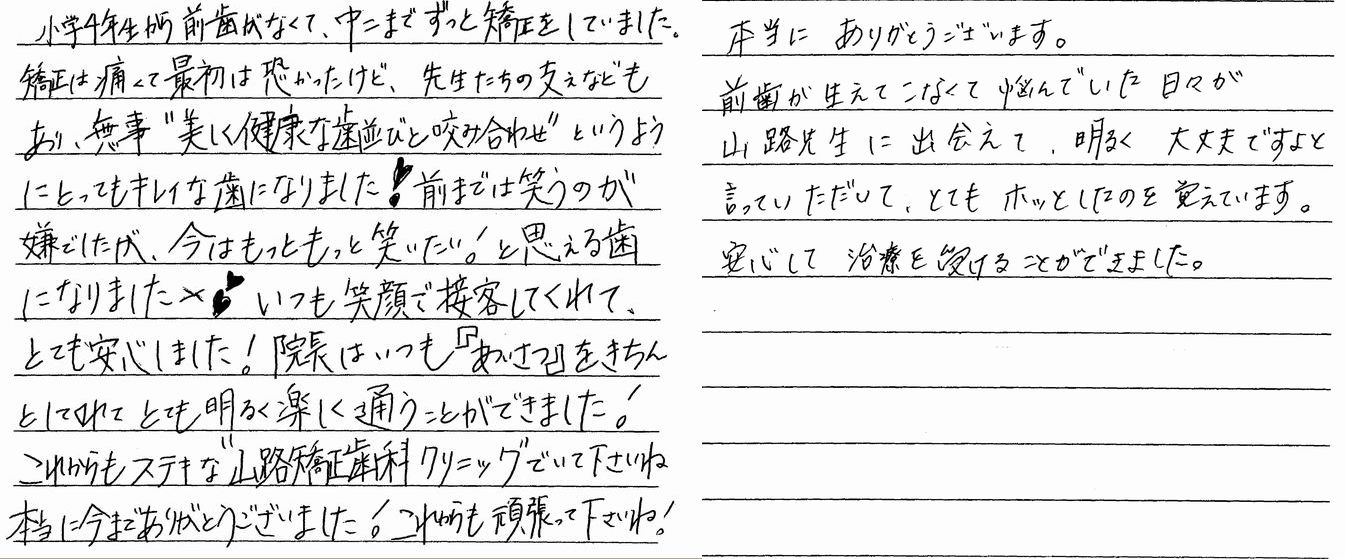 小学4年生から前歯がなくて、中二までずっと矯正をしていました。
矯正は痛くて最初は恐かったけど、先生たちの支えなども
あり、無事“美しく健康な歯並びと咬み合わせ”というよう
にとってもキレイな歯になりました！前までは笑うのが
嫌でしたが、今はもっともっと笑いたい！と思える歯
になりました いつも笑顔で接客してくれて、
とても安心しました！院長はいつも『あいさつ』をきちん
としてくれてとても明るく楽しく通うことができました！
これからもステキな“山路矯正歯科クリニックでいて下さいね
本当に今までありがとうございました！これからも頑張って下さいね！
本当に ありがとうございます。
前歯が生えてこなくて悩んでいた日々が
山路先生に出会えて、明るく 大丈夫ですよと
言っていただいて、とても ホッとしたのを覚えています。
安心して 治療を受けることができました。